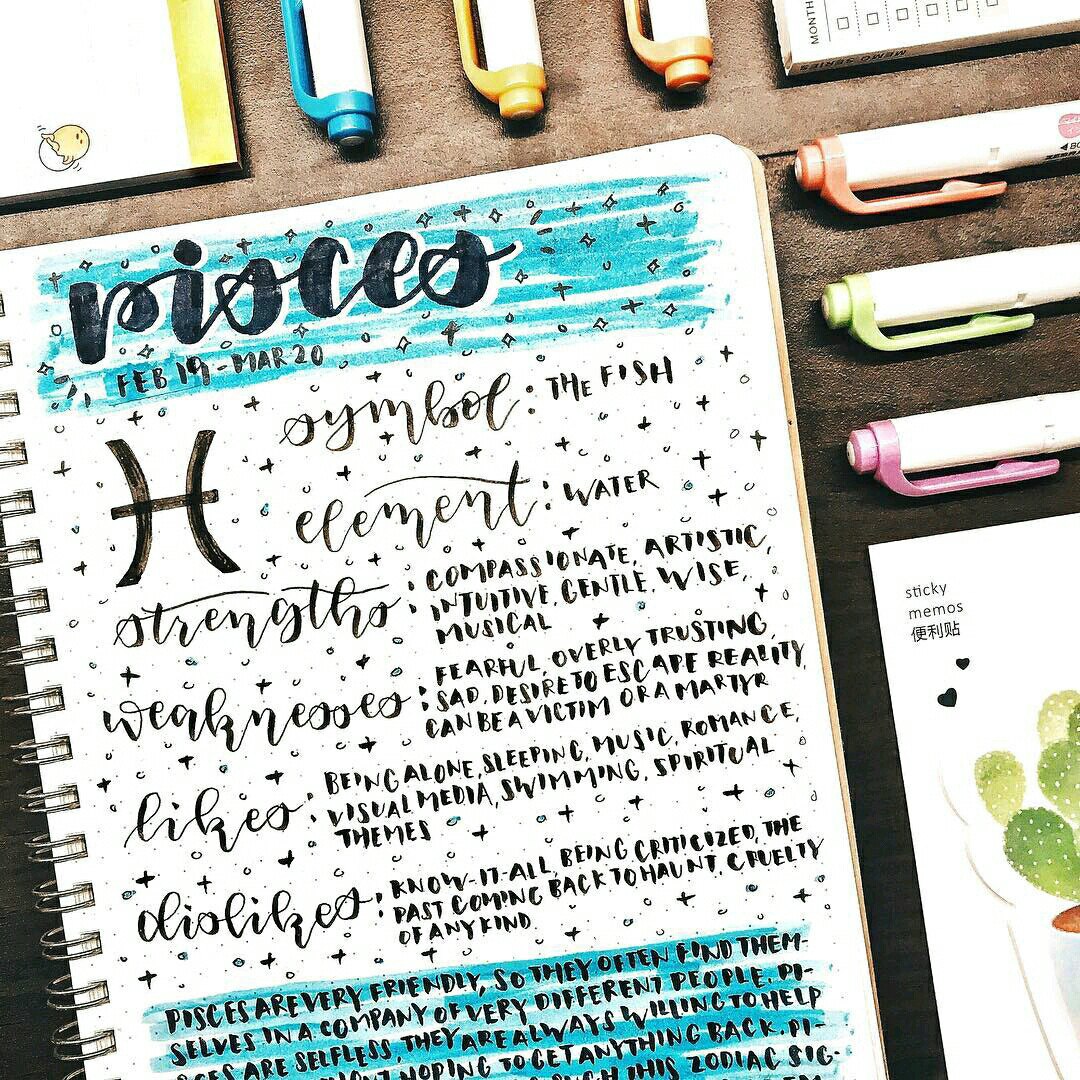 MONTH
MEMO SERIES
pisces
FEB 19 - MAR 20
symbol: THE FISH
element: WATER
strengths: COMPASSIONATE, ARTISTIC,
INTUITIVE, GENTLE, WISE,
MUSICAL
weaknesses: FEARFUL, OVERLY TRUSTING,
SAD, DESIRE TO ESCAPE REALITY
CAN BE A VICTIM OR A MARTYR
likes: BEING ALONE, SLEEPING, MUSIC, ROMANCE,
VISUAL MEDIA, SWIMMING, SPIRITUAL
THEMES
dislikes: KNOW-IT-ALL, BEING CRITICIZED, THE
PAST COMING BACK TO HAUNT, CRUELTY
OF ANY KIND
PISCES ARE VERY FRIENDLY, SO THEY OFTEN FIND THEM-
SELVES IN A COMPANY OF VERY DIFFERENT PEOPLE. PI-
SCES ARE SELFLESS, THEY ARE ALWAYS WILLING TO HELP
HOPING TO GET ANYTHING BACK. PI-
THIS ZODIAC SIG-
sticky
memos
便利贴